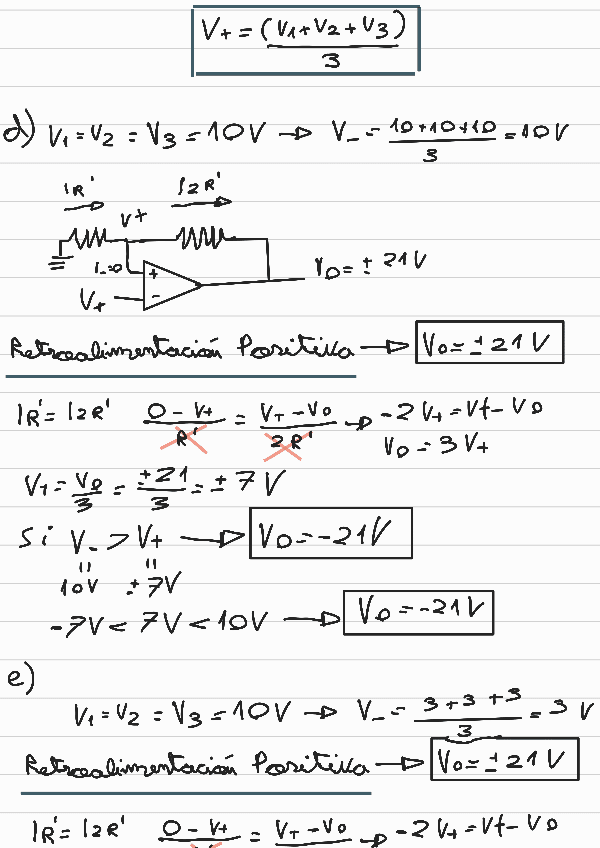 V+ = (V1+V2+V3) / 3
d) V1=V2 = V3 = 10V → V_ = 10+10+10 / 3 = 10V
IR' I2R'
V+
I_=0 + V0 = ± 21V
V+ -
Retroalimentación Positiva → V0 = ± 21V
IR' = I2R' 0 - V+ / R' = VT - V0 / 2R' → -2V+ = Vt - V0
V0 = 3V+
V1 = V0 / 3 = ±21 / 3 = ± 7 V
Si V_ > V+ → V0 = -21V
10V ± 7V
-7V < 7V < 10V → V0 = -21V
e)
V1=V2 = V3 = 10V → V_ = 3+3+3 / 3 = 3 V
Retroalimentación Positiva → V0 = ± 21V
IR' = I2R' 0 - V+ = VT - V0 → -2V+ = Vt - V0